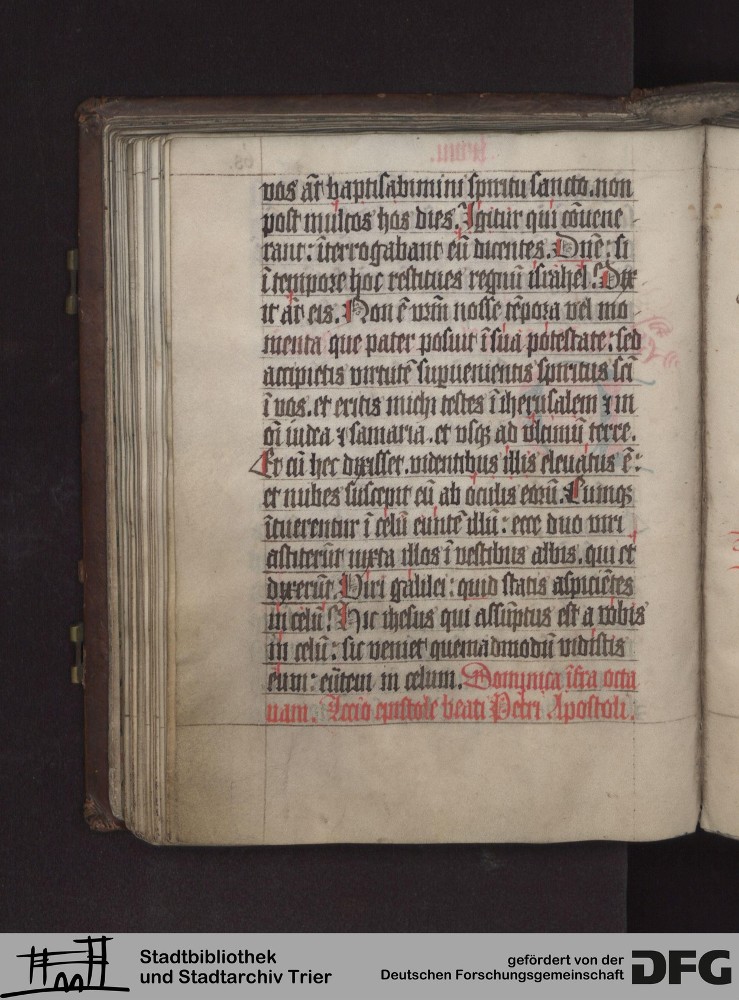 vos aūt baptisabimini spiritu sancto. non
post multos hos dies. Igitur qui cōuene
rant: īterrogabant eū dicentes. Dn̄e: si
ī tempore hoc restitues regnū israhel? Dix
it aūt eis. Non ē vr̄m nosse tēpora vel mo
menta que pater posuit ī sua potestate: sed
accipietis virtutē supuenientis spiritus sc̄i
ī vos. et eritis michi testes ī iherusalem ⁊ in
oī iudea ⁊ samaria. et vsqꝫ ad vltimū terre.
Et cū hec dixisset. videntibus illis eleuatus ē:
et nubes suscepit eū ab oculis eorū. Cumqꝫ
ītuerentur ī celū euntē illū: ecce duo viri
astiterūt iuxta illos ī vestibus albis. qui et
dixerūt. Viri galilei: quid statis aspiciētes
in celū? Hic ihesus qui assūptus est a vobis
in celū: sic veniet quemadmodū vidistis
eum: eūtem in celum. Dominica īfra octa
uam. Lectio epistole beati Petri Apostoli.
Stadtbibliothek
und Stadtarchiv Trier
gefördert von der
Deutschen Forschungsgemeinschaft
DFG